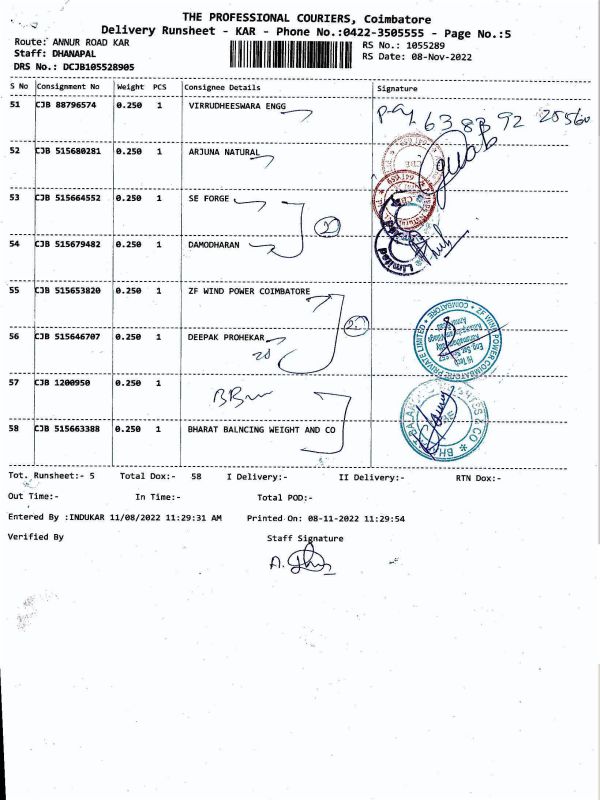 THE PROFESSIONAL COURIERS, Coimbatore
Delivery Runsheet - KAR - Phone No.:0422-3505555 - Page No.:5
Route: ANNUR ROAD KAR
RS No.: 1055289
Staff: DHANAPAL
RS Date: 08-Nov-2022
DRS No.: DCJB105528905
S No Consignment No Weight PCS Consignee Details Signature
51 CJB 88796574 0.250 1 VIRRUDHEESWARA ENGG
52 CJB 515680281 0.250 1 ARJUNA NATURAL
53 CJB 515664552 0.250 1 SE FORGE
54 CJB 515679482 0.250 1 DAMODHARAN
Limited
55 CJB 515653820 0.250 1 ZF WIND POWER COIMBATORE
56 CJB 515646707 0.250 1 DEEPAK PROHEKAR
ZF WIND POWER COIMBATORE PRIVATE LIMITED * COIMBATORE *
57 CJB 1200950 0.250 1
58 CJB 515663388 0.250 1 BHARAT BALNCING WEIGHT AND CO
Tot. Runsheet:- 5 Total Dox:- 58 I Delivery:- II Delivery:- RTN Dox:-
Out Time:- In Time:- Total POD:-
Entered By :INDUKAR 11/08/2022 11:29:31 AM Printed On: 08-11-2022 11:29:54
Verified By Staff Signature